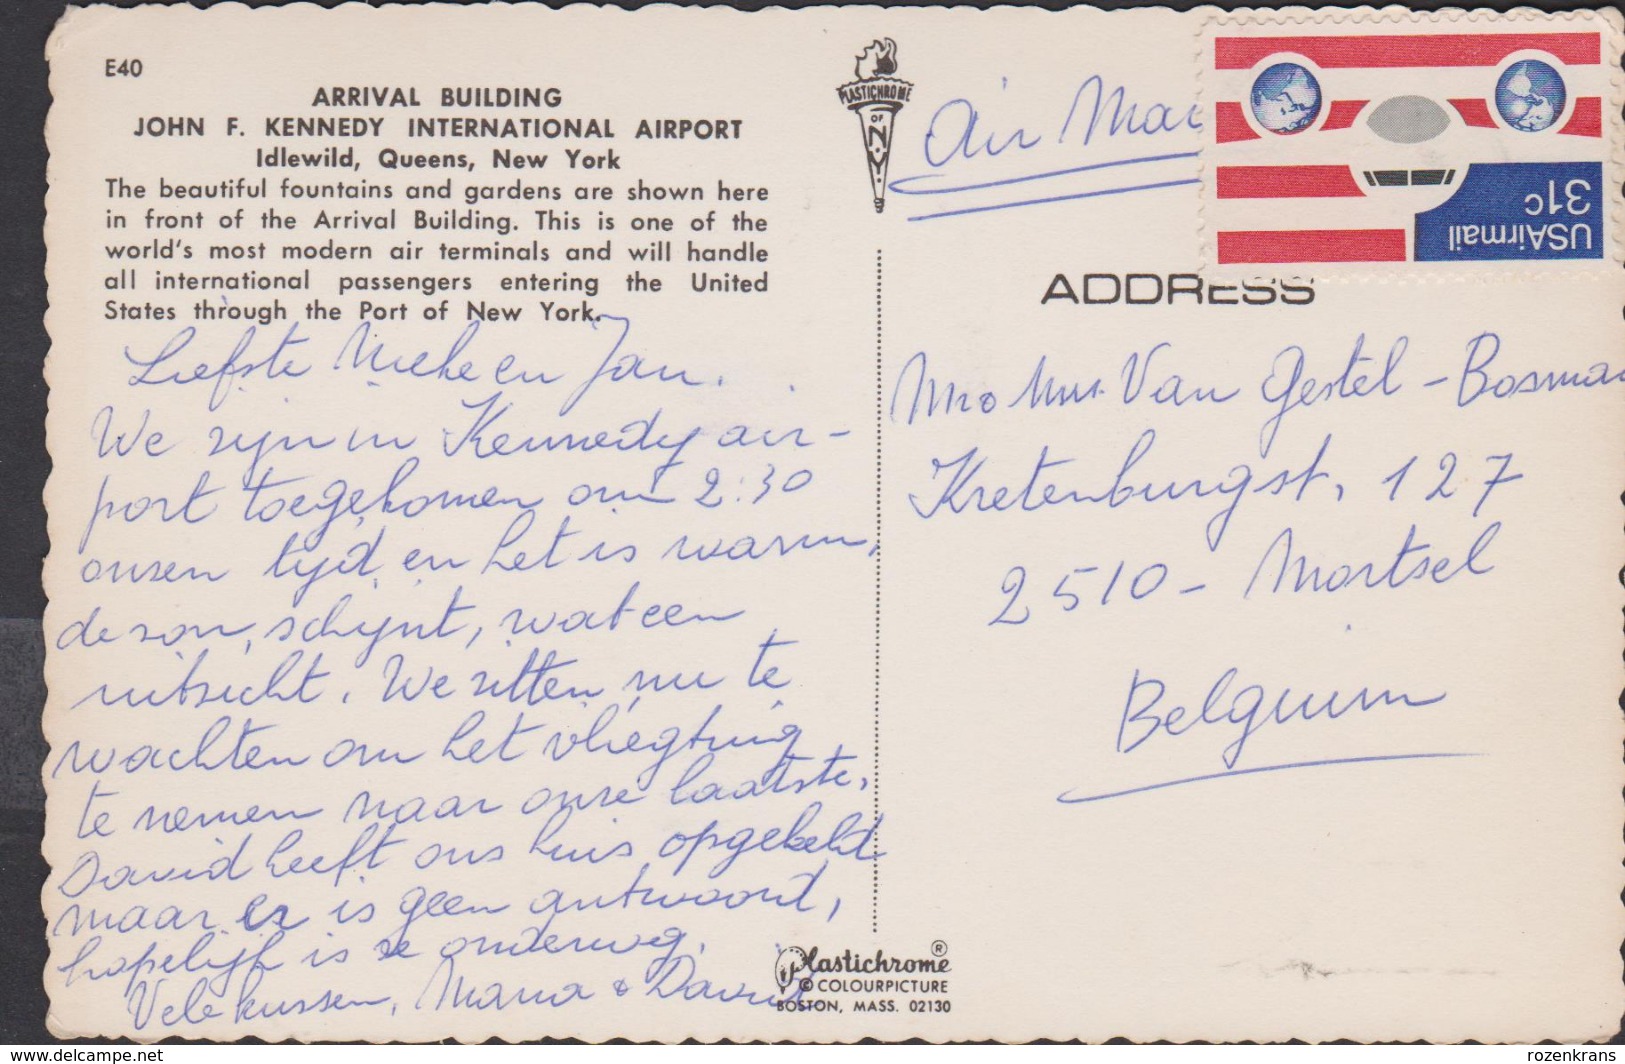 E40
ARRIVAL BUILDING
JOHN F. KENNEDY INTERNATIONAL AIRPORT
Idlewild, Queens, New York
The beautiful fountains and gardens are shown here
in front of the Arrival Building. This is one of the
world's most modern air terminals and will handle
all international passengers entering the United
States through the Port of New York.
Liefste Mieke en Jan.
We zijn in Kennedy air-
port toegekomen om 2:30
onzen tijd en het is warm,
de zon schijnt, wat een
uitzicht. We zitten nu te
wachten om het vliegtuig
te nemen naar onze laatste,
David heeft ons huis opgebeld
maar er is geen antwoord,
hopelijk is ze onderweg.
Vele kussen, Maria & David
PLASTICHROME
OF
N.Y.
Air Mai
USAirmail
31c
ADDRESS
Mr & Mme Van Gestel - Bosman
Kretenburgst, 127
2510 - Mortsel
Belgium
Plastichrome ®
© COLOURPICTURE
BOSTON, MASS. 02130
www.delcampe.net
rozenkrans